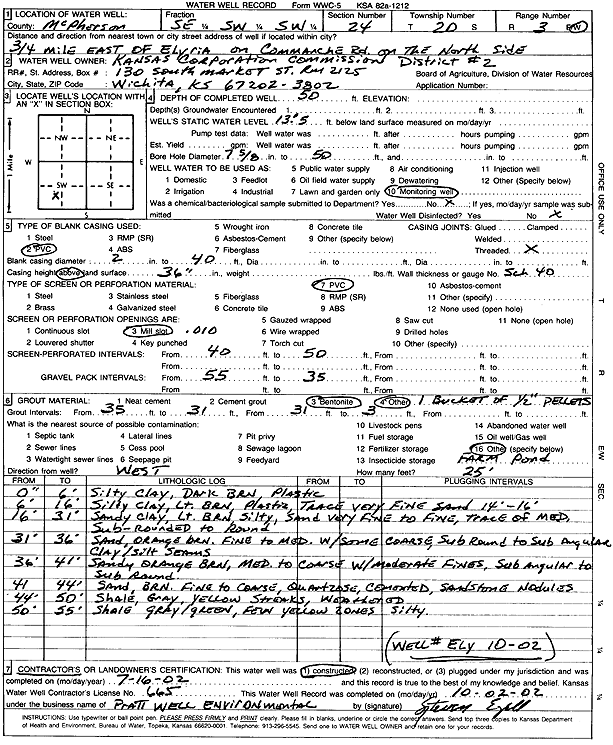 WATER WELL RECORD Form WWC-5 KSA 82a-1212
1 LOCATION OF WATER WELL: Fraction Section Number Township Number Range Number
County: McPherson SE 1/4 SW 1/4 SW 1/4 24 T 20 S R 3 E/W
Distance and direction from nearest town or city street address of well if located within city?
3/4 mile EAST OF Elyria on Commanche Rd. on The North Side
2 WATER WELL OWNER: KANSAS Corporation Commission District #2
RR#, St. Address, Box # : 130 South MARKET ST. Rm 2125 Board of Agriculture, Division of Water Resources
City, State, ZIP Code : Wichita, KS 67202-3802 Application Number:
3 LOCATE WELL'S LOCATION WITH AN "X" IN SECTION BOX:
N
NW NE
W E
SW SE
X
S
1 Mile
4 DEPTH OF COMPLETED WELL 50 ft. ELEVATION:
Depth(s) Groundwater Encountered 1. ft. 2. ft. 3. ft.
WELL'S STATIC WATER LEVEL 13.5 ft. below land surface measured on mo/day/yr
Pump test data: Well water was ft. after hours pumping gpm
Est. Yield gpm: Well water was ft. after hours pumping gpm
Bore Hole Diameter 7 5/8 in. to 50 ft., and in. to ft.
WELL WATER TO BE USED AS: 5 Public water supply 8 Air conditioning 11 Injection well
1 Domestic 3 Feedlot 6 Oil field water supply 9 Dewatering 12 Other (Specify below)
2 Irrigation 4 Industrial 7 Lawn and garden only 10 Monitoring well
Was a chemical/bacteriological sample submitted to Department? Yes No X ; If yes, mo/day/yr sample was submitted
Water Well Disinfected? Yes No X
5 TYPE OF BLANK CASING USED: 5 Wrought iron 8 Concrete tile CASING JOINTS: Glued Clamped
1 Steel 3 RMP (SR) 6 Asbestos-Cement 9 Other (specify below) Welded
2 PVC 4 ABS 7 Fiberglass Threaded X
Blank casing diameter 2 in. to 40 ft., Dia in. to ft., Dia in. to ft.
Casing height above land surface 36" in., weight lbs./ft. Wall thickness or gauge No. Sch. 40
TYPE OF SCREEN OR PERFORATION MATERIAL: 7 PVC 10 Asbestos-cement
1 Steel 3 Stainless steel 5 Fiberglass 8 RMP (SR) 11 Other (specify)
2 Brass 4 Galvanized steel 6 Concrete tile 9 ABS 12 None used (open hole)
SCREEN OR PERFORATION OPENINGS ARE: 5 Gauzed wrapped 8 Saw cut 11 None (open hole)
1 Continuous slot 3 Mill slot .010 6 Wire wrapped 9 Drilled holes
2 Louvered shutter 4 Key punched 7 Torch cut 10 Other (specify)
SCREEN-PERFORATED INTERVALS: From 40 ft. to 50 ft., From ft. to ft.
From ft. to ft., From ft. to ft.
GRAVEL PACK INTERVALS: From 55 ft. to 35 ft., From ft. to ft.
From ft. to ft., From ft. to ft.
6 GROUT MATERIAL: 1 Neat cement 2 Cement grout 3 Bentonite 4 Other 1 BUCKET OF 1/2" PELLETS
Grout Intervals: From 35 ft. to 31 ft., From 31 ft. to 3 ft., From ft. to ft.
What is the nearest source of possible contamination: 10 Livestock pens 14 Abandoned water well
1 Septic tank 4 Lateral lines 7 Pit privy 11 Fuel storage 15 Oil well/Gas well
2 Sewer lines 5 Cess pool 8 Sewage lagoon 12 Fertilizer storage 16 Other (specify below)
3 Watertight sewer lines 6 Seepage pit 9 Feedyard 13 Insecticide storage FARM POND
Direction from well? WEST How many feet? 25'
FROM TO LITHOLOGIC LOG FROM TO PLUGGING INTERVALS
0" 6' Silty Clay, DARK BRN, Plastic
6' 16' Silty Clay, Lt. BRN, Plastic, TRACE very Fine Sand 14'-16'
16' 31' Sandy Clay, Lt. BRN, Silty, Sand very Fine to Fine, TRACE OF MED.
Sub-ROUNDED to Round
31' 36' Sand, ORANGE brn. FINE to MED. W/SOME COARSE, Sub Round to Sub Angular
Clay/Silt Seams
36' 41' Sandy ORANGE BRN, MED. to COARSE W/MODERATE FINES, Sub Angular to
Sub Round
41 44' Sand, BRN. FINE to COARSE, QUARTZOSE, CEMENTED, SANDSTONE NODULES
44' 50' Shale, GRAY, YELLOW STREAKS, WEATHERED
50' 55' Shale GRAY/GREEN, FEW YELLOW ZONES Silty.
(WELL # ELY 10-02)
7 CONTRACTOR'S OR LANDOWNER'S CERTIFICATION: This water well was (1) constructed, (2) reconstructed, or (3) plugged under my jurisdiction and was
completed on (mo/day/year) 7-16-02 and this record is true to the best of my knowledge and belief. Kansas
Water Well Contractor's License No. 665 This Water Well Record was completed on (mo/day/yr) 10-02-02
under the business name of PRATT WELL ENVIRONMENTAL by (signature)
INSTRUCTIONS: Use typewriter or ball point pen. PLEASE PRESS FIRMLY and PRINT clearly. Please fill in blanks, underline or circle the correct answers. Send top three copies to Kansas Department
of Health and Environment, Bureau of Water, Topeka, Kansas 66620-0001. Telephone: 913-296-5545. Send one to WATER WELL OWNER and retain one for your records.
OFFICE USE ONLY
T
R
E/W
SEC.
1/4
1/4
1/4